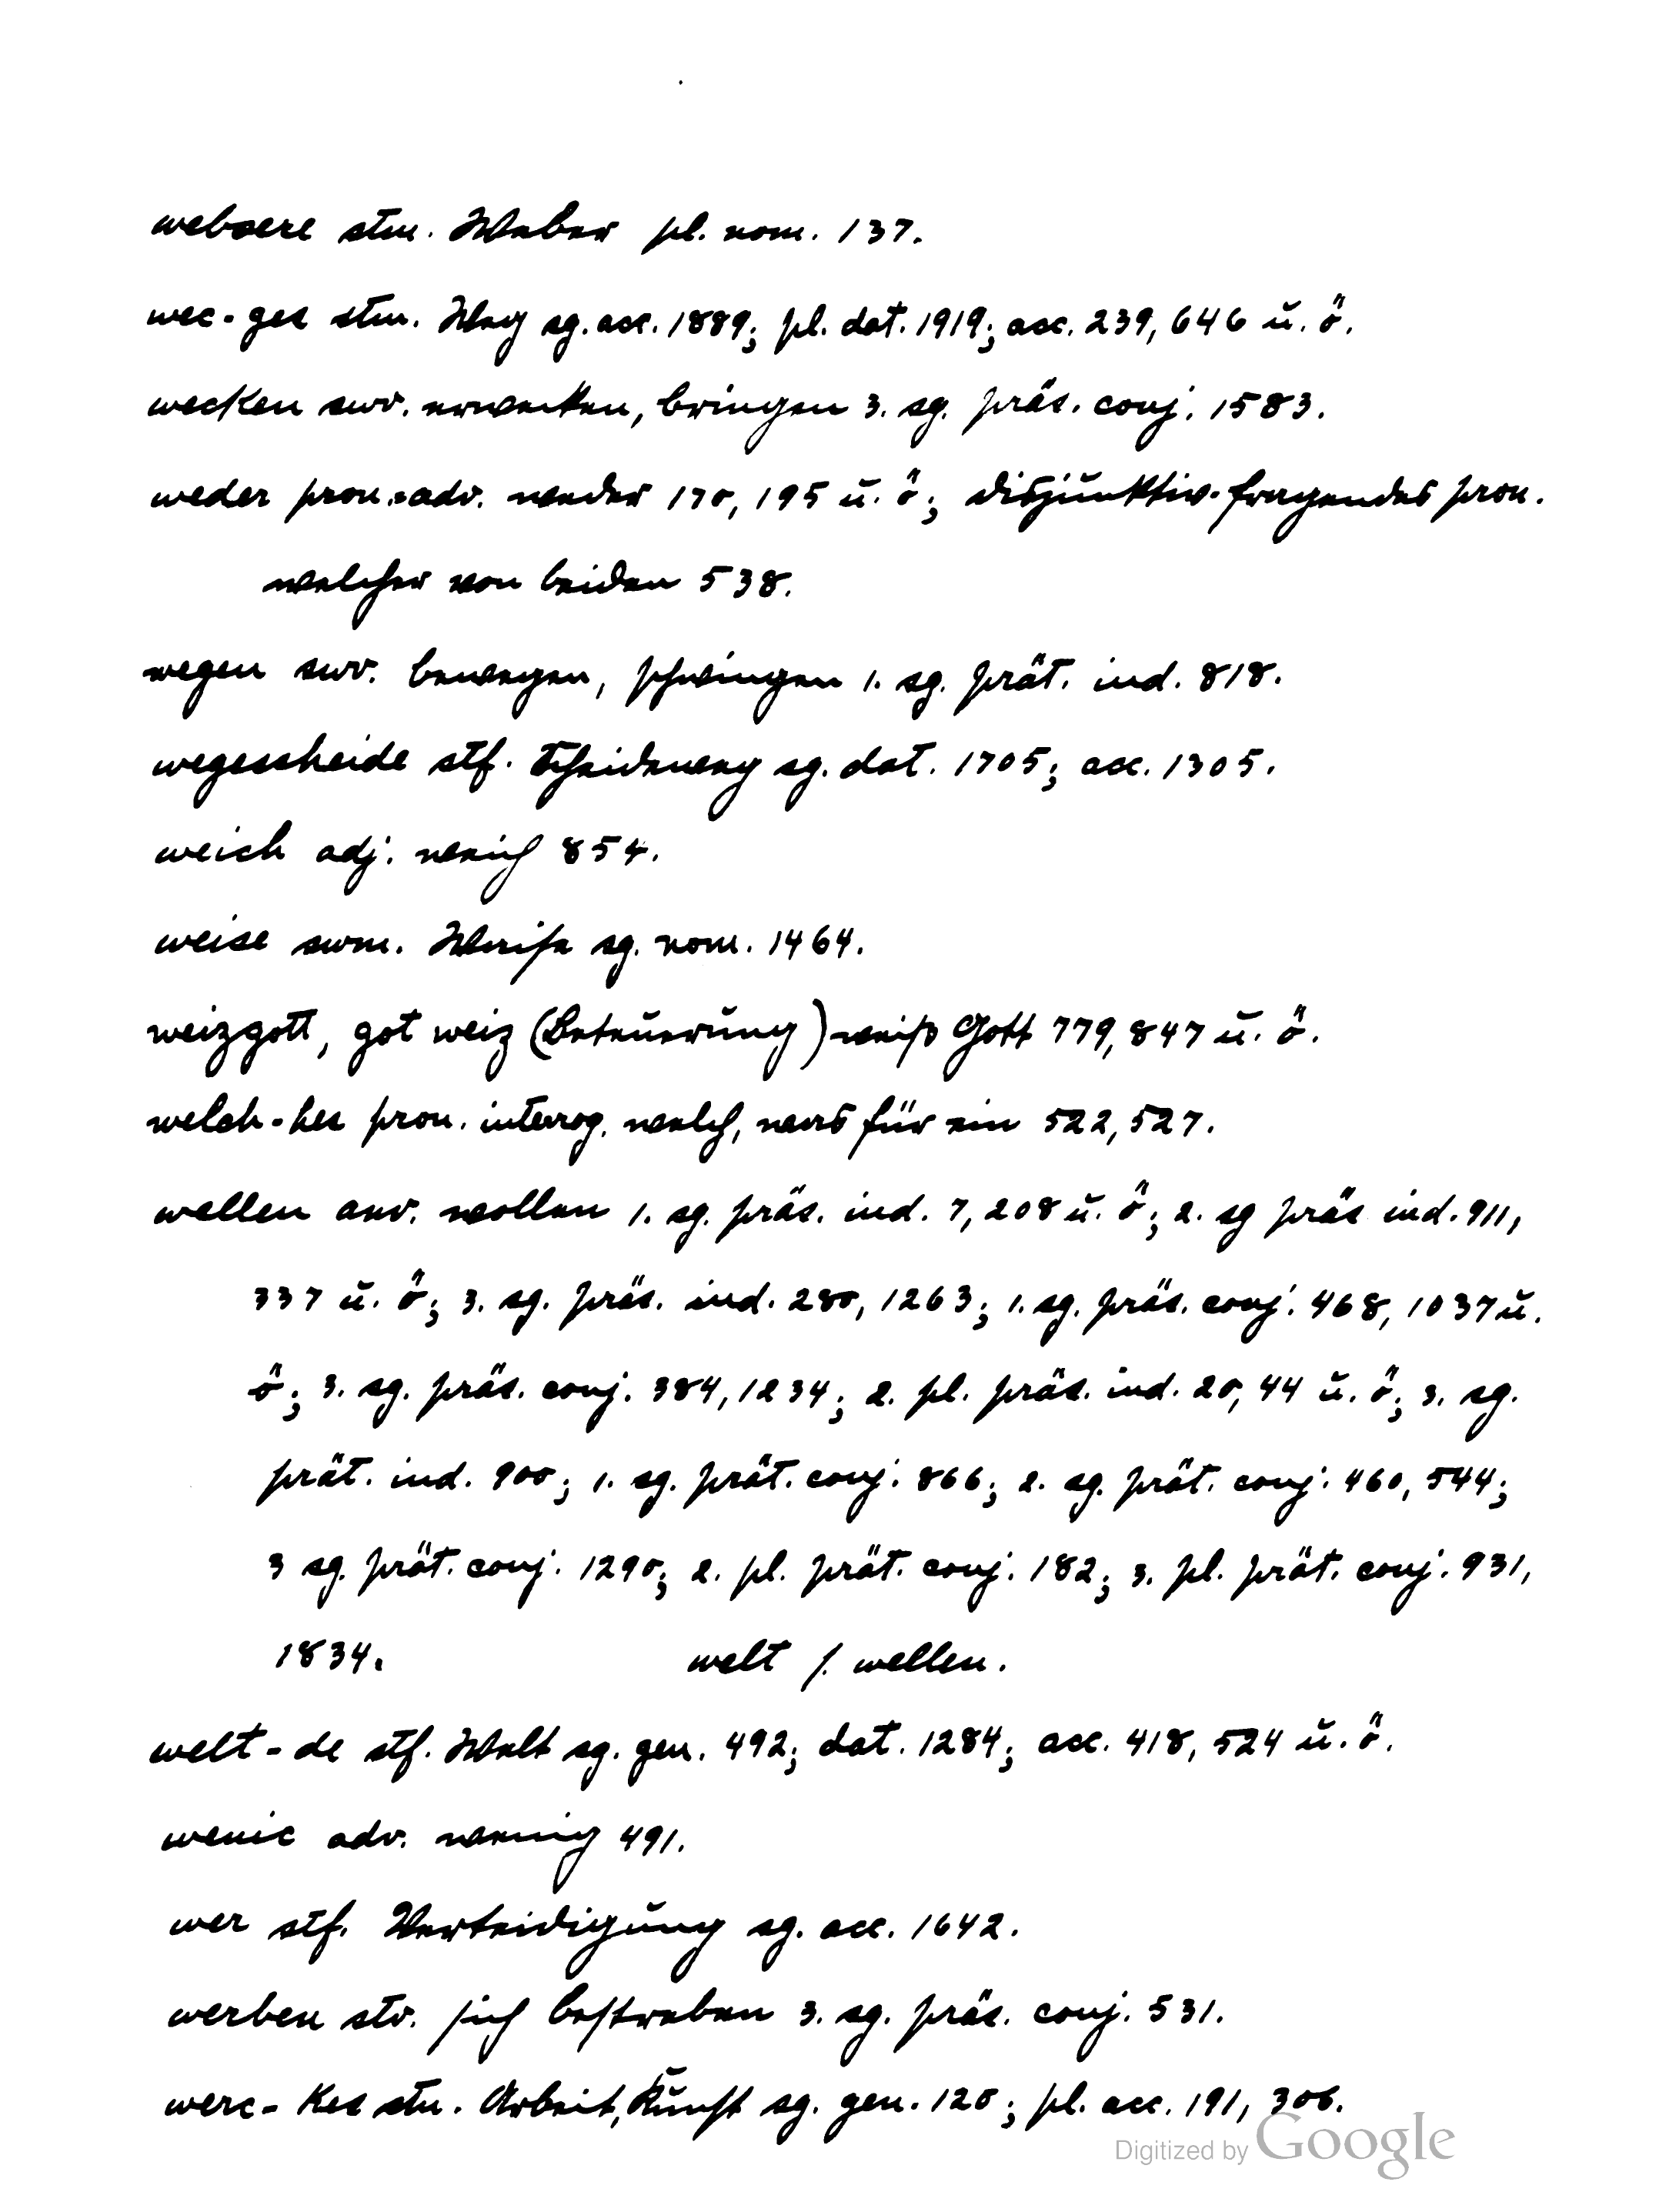 webaere stm. Weber pl. nom. 137.
wec-ges stm. Weg sg. acc. 1889; pl. dat. 1919; acc. 239, 646 u. ö.
wecken swv. erwecken, bringen 3. sg. präs. conj. 1583.
weder pron.-adv. weder 170, 195 u. ö; disjunktiv-fragendes pron.
welcher von beiden 538.
wegen swv. bewegen, schwingen 1. sg. prät. ind. 818.
wegescheide stf. Scheideweg sg. dat. 1705; acc. 1305.
weich adj. weich 854.
weise swm. Waise sg. nom. 1464.
weizgott, got weiz (Beteuerung) weiß Gott 779, 847 u. ö.
welch-hes pron. interrog. welch, was für ein 522, 527.
wellen anv. wollen 1. sg. präs. ind. 7, 208 u. ö; 2. sg präs ind. 911,
337 u. ö; 3. sg. präs. ind. 280, 1263; 1. sg. präs. conj. 468, 1037 u.
ö; 3. sg. präs. conj. 384, 1234; 2. pl. präs. ind. 20, 44 u. ö; 3. sg.
prät. ind. 900; 1. sg. prät. conj. 866; 2. sg. prät. conj. 460, 544;
3 sg. prät. conj. 1290; 2. pl. prät. conj. 182; 3. pl. prät. conj. 931,
1834. welt s. wellen.
welt-de stf. Welt sg. gen. 492; dat. 1284; acc. 418, 524 u. ö.
wenic adv. wenig 491.
wer stf. Verteidigung sg. acc. 1642.
werben stv. sich bestreben 3. sg. präs. conj. 531.
werc-kes stn. Arbeit, Kunst sg. gen. 120; pl. acc. 191, 306.
Digitized by Google